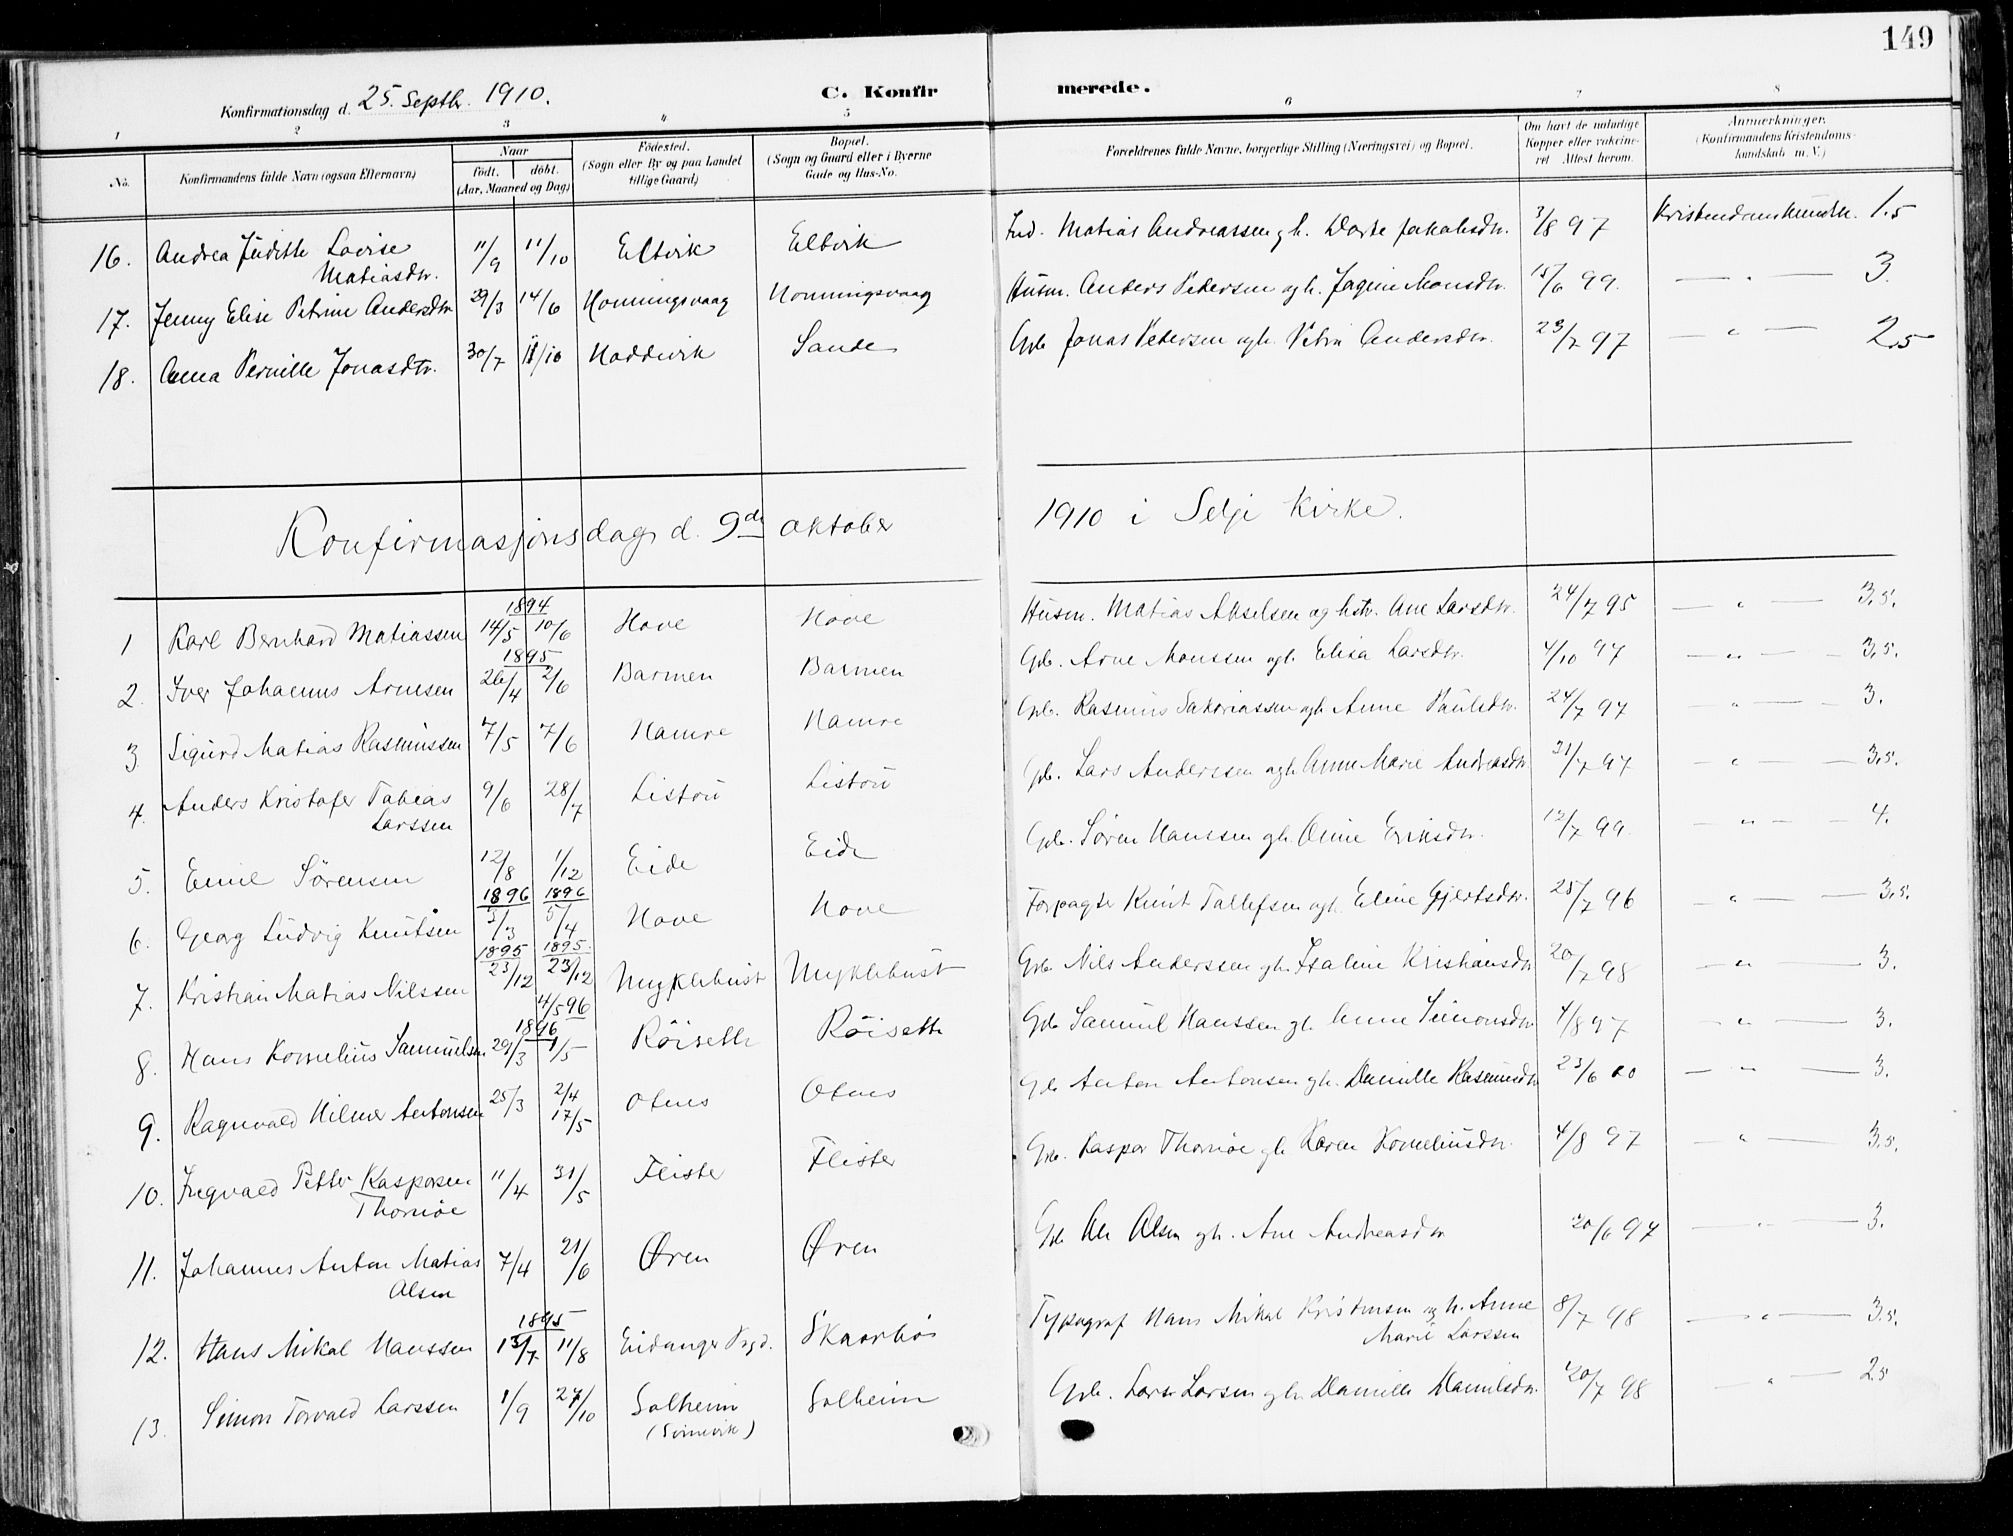 149
Konfirmationsdag d. 25. Septbr. 1910. C. Konfirmerede.
1 2 3 4 5 6 7 8
No. Konfirmandens fulde Navn (ogsaa Efternavn) Naar födt. döbt. (Aar, Maaned og Dag) Födested. (Sogn eller By og paa Landet tillige Gaard) Bopæl. (Sogn og Gaard eller i Byerne Gade og Hus-No. Forældrenes fulde Navne, borgerlige Stilling (Næringsvei) og Bopæl. Om havt de naturlige Kopper eller vakcineret. Attest herom. Anmerkninger. (Konfirmandens Kristendomskundskab m. V.)
16. Andrea Judith Lovise 11/9 11/10 Eltvik Eltvik Ind. Matias Andreassen gh. Dorte Jakobsdtr. 3/8 97 Kristendomskundsk. 1.5
Matiasdtr.
17. Jenny Elise Petrine Andersdtr 29/3 14/6 Honningsvaag Honningsvaag Husm. Anders Pedersen ogh. Jagine Monsdtr. 15/6 99. — " — 3.
18. Anna Pernille Jonasdtr. 30/7 11/10 Hoddevik Sande Gbr Jonas Pedersen ogh. Petra Andersdtr. 23/7 97 — " — 2.5
Konfirmasjonsdag d. 9de oktober 1910 i Selje Kirke.
1894
1 Karl Bernhard Matiassen 14/5 10/6 Hove Hove Husm. Matias Akselsen og hstr. Ane Larsdtr. 24/7 95 — " — 3.5.
1895
2. Iver Johannes Arnesen 26/4 2/6 Barmen Barmen Gbr. Arne Monssen ogh. Elisa Larsdtr. 4/10 97 — " — 3.5.
3 Sigurd Matias Rasmussen 7/5 7/6 Hamre Hamre Gbr. Rasmus Sakariassen ogh Anne Paulsdtr. 24/7 97 — " — 3.
4. Anders Kristofer Tobias 9/6 28/7 Listou Listou Gbr. Lars Anderssen ogh. Anne Marie Andreasdtr. 31/7 97 — " — 3.5.
Larssen
5. Emil Sørensen 12/8 1/12 Eide Eide Gbr. Søren Hanssen gh. Anne Eriksdtr. 12/7 99. — " — 4.
1896 1896
6. Georg Ludvig Knutsen 5/3 5/4 Hove Hove Forpagter Knut Tollefsen ogh. Eline Gjertsdtr. 25/7 96 — " — 3.5.
1895 1895.
7. Kristian Matias Nilssen 23/12 23/12 Myklebust Myklebust Gbr. Nils Anderssen gh. Italine Kristiansdtr 20/7 98 — " — 3.
4/5 96
1896
8. Hans Kornelius Samuelsen 29/3 1/5 Röiseth Röiseth Gbr Samuel Hanssen gh. Anne Simonsdtr 4/8 97 — " — 3.
9. Ragnvald Hilmer Antonsen 25/3 2/4 Otnes Otnes Gbr Anton Antonsen gh. Danielle Rasmusdtr 23/6 00 — " — 3.
17/5
10. Ingvald Petter Kaspersen 11/4 31/5 Fliste Flister Gbr. Kasper Thorsøe gh. Karen Korneliusdtr. 4/8 97 — " — 3.5.
Thorsøe
11. Johannes Anton Matias 7/4 21/6 Øren Øren Gbr Ole Olsen gh. Ane Andreasdtr 20/6 97 — " — 3.
Olsen
1895
12. Hans Mikal Hanssen 13/7 11/8 Eidanger Prgd. Skaarbö Typograf Hans Mikal Kristensen og h. Anne 8/7 98 — " — 3.5.
Marie Larssen
13. Simon Torvald Larssen 1/9 27/10 Solheim Solheim Gbr. Lars Larsen gh. Danielle Danielsdtr. 20/7 98 — " — 2.5